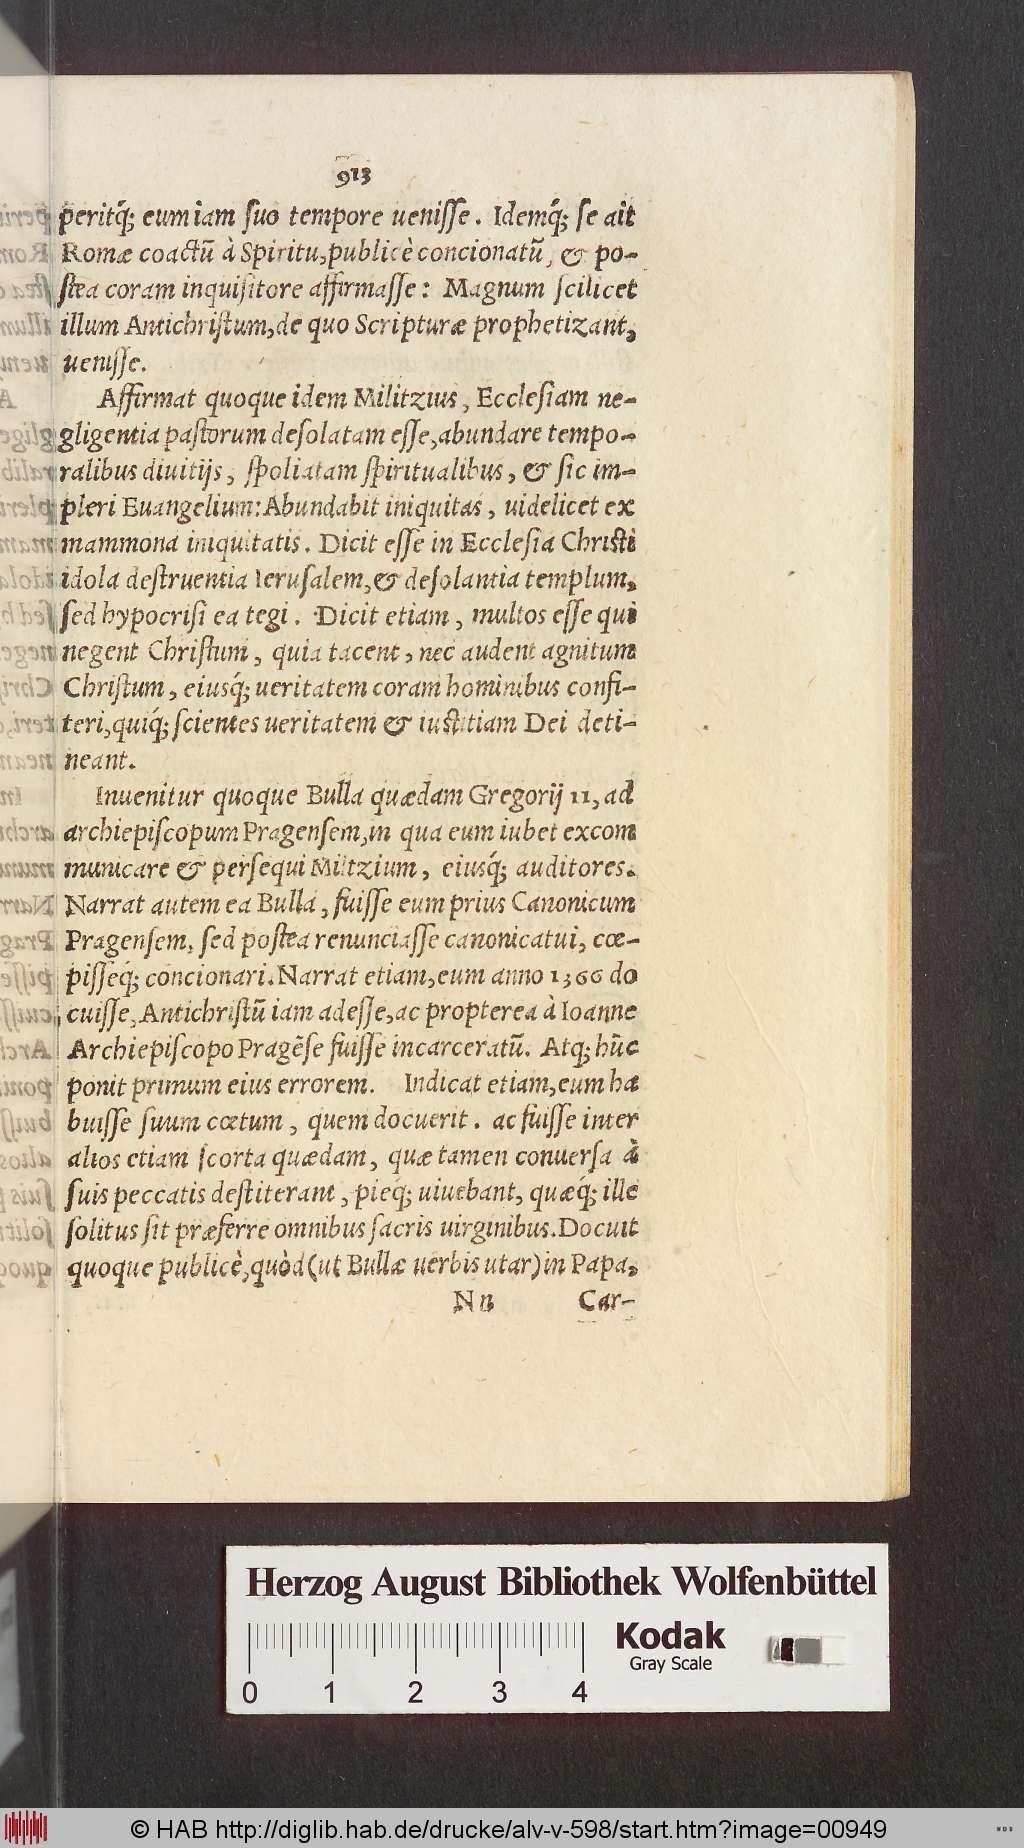 913
peritq́; eum iam ſuo tempore ueniſſe. Idemq́; ſe ait
Romæ coactū à Spiritu, publicè concionatū, & po-
ſtea coram inquiſitore affirmaſſe: Magnum ſcilicet
illum Antichriſtum, de quo Scripturæ prophetizant,
ueniſſe.
Affirmat quoque idem Militzius, Eccleſiam ne-
gligentia paſtorum deſolatam eſſe, abundare tempo-
ralibus diuitijs, ſpoliatam ſpiritualibus, & ſic im-
pleri Euangelium: Abundabit iniquitas, uidelicet ex
mammona iniquitatis. Dicit eſſe in Eccleſia Chriſti
idola deſtruentia Ieruſalem, & deſolantia templum,
ſed hypocriſi ea tegi. Dicit etiam, multos eſſe qui
negent Chriſtum, quia tacent, nec audent agnitum
Chriſtum, eiusq́; ueritatem coram hominibus confi-
teri, quiq́; ſcientes ueritatem & iuſtitiam Dei deti-
neant.
Inuenitur quoque Bulla quædam Gregorij 11, ad
archiepiſcopum Pragenſem, in qua eum iubet excom
municare & perſequi Miltzium, eiusq́; auditores.
Narrat autem ea Bulla, fuiſſe eum prius Canonicum
Pragenſem, ſed poſtea renunciaſſe canonicatui, cœ-
piſſeq́; concionari. Narrat etiam, eum anno 1366 do
cuiſſe, Antichriſtū iam adeſſe, ac propterea à Ioanne
Archiepiſcopo Pragēſe fuiſſe incarceratū. Atq; hūc
ponit primum eius errorem. Indicat etiam, eum ha
buiſſe ſuum cœtum, quem docuerit. ac fuiſſe inter
alios etiam ſcorta quædam, quæ tamen conuerſa à
ſuis peccatis deſtiterant, pieq́; uiuebant, quæq́; ille
ſolitus ſit præferre omnibus ſacris uirginibus. Docuit
quoque publicè, quòd (ut Bullæ uerbis utar) in Papa,
Nn Car-
Herzog August Bibliothek Wolfenbüttel
Kodak
Gray Scale
0 1 2 3 4
© HAB http://diglib.hab.de/drucke/alv-v-598/start.htm?image=00949